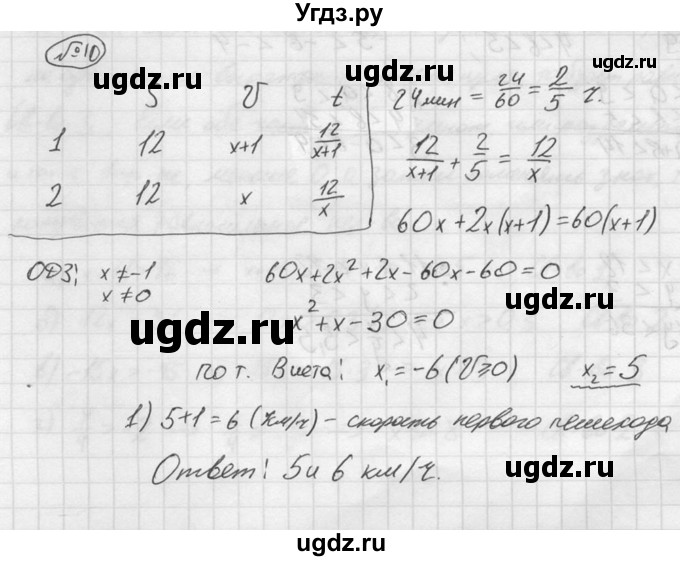 Угдз.ру
№10
S V t
1 12 x+1 12/(x+1)
2 12 x 12/x
24 мин = 24/60 = 2/5 ч.
12/(x+1) + 2/5 = 12/x
60x+2x(x+1)=60(x+1)
ОДЗ: x≠-1
x≠0
60x+2x²+2x-60x-60=0
x²+x-30=0
по т. Виета: x₁=-6 (V≥0) x₂=5
1) 5+1=6 (км/ч) - скорость первого пешехода
Ответ: 5 и 6 км/ч.
ugdz.ru
ugdz.ru
ugdz.ru
ugdz.ru
ugdz.ru
ugdz.ru
ugdz.ru
ugdz.ru